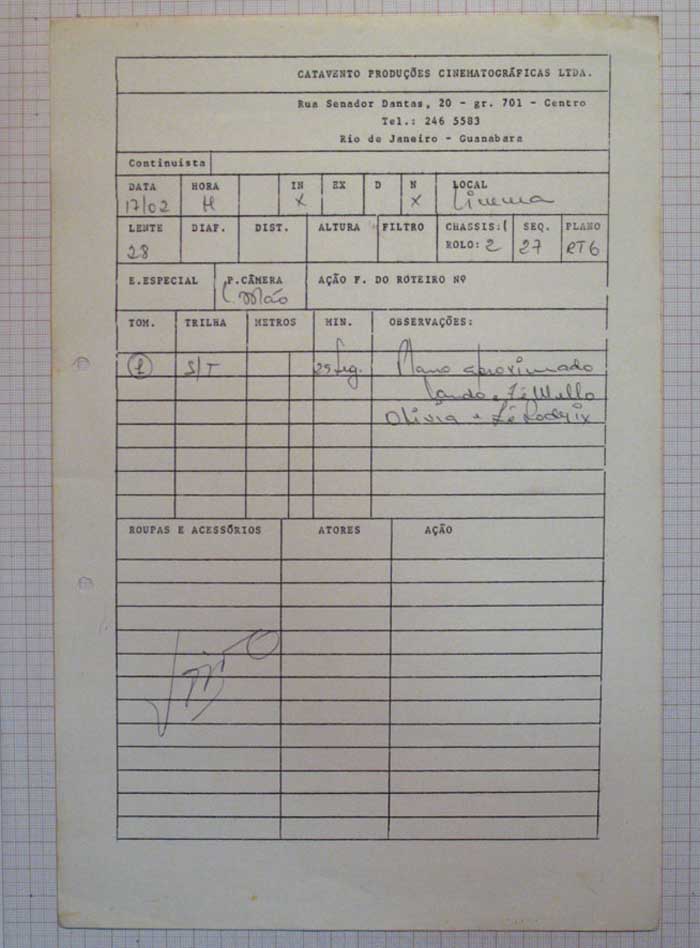 CATAVENTO PRODUÇÕES CINEMATOGRÁFICAS LTDA.
Rua Senador Dantas, 20 - gr. 701 - Centro
Tel.: 246 5583
Rio de Janeiro - Guanabara
Continuista
DATA HORA IN EX D N LOCAL
17/02 H X X Cinema
LENTE DIAF. DIST. ALTURA FILTRO CHASSIS: 1 SEQ. PLANO
28 ROLO: 2 27 RT6
E.ESPECIAL P.CÂMERA AÇÃO F. DO ROTEIRO Nº
C. Mão
TOM. TRILHA METROS MIN. OBSERVAÇÕES:
1 S/T 25 seg. Plano aproximado
e Zé Mello
Olivia e Zé Rodrix
ROUPAS E ACESSÓRIOS ATORES AÇÃO